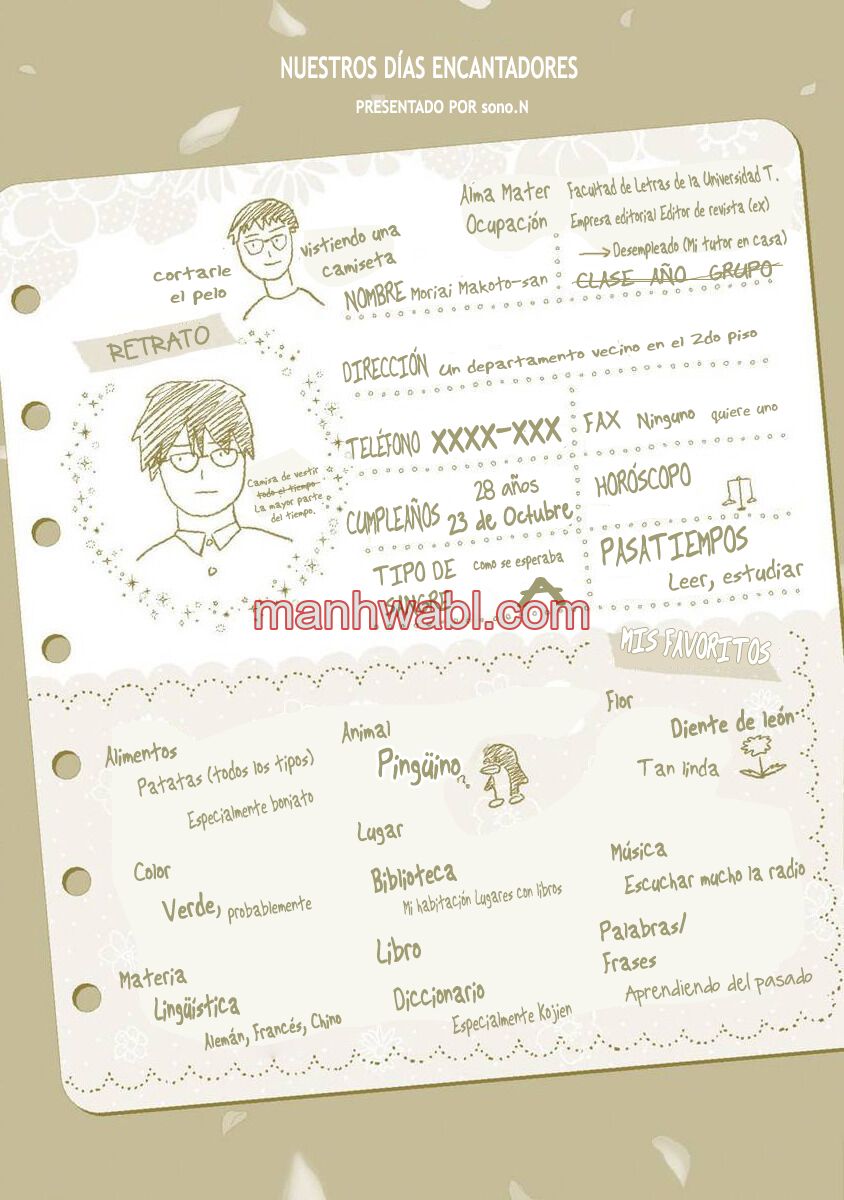 NUESTROS DÍAS ENCANTADORES
PRESENTADO POR sono.N
cortarle
el pelo
vistiendo una
camiseta
Alma Mater
Facultad de Letras de la Universidad T.
Ocupación
Empresa editorial Editor de revista (ex)
→ Desempleado (Mi tutor en casa)
NOMBRE Moriai Makoto-san
CLASE AÑO GRUPO
RETRATO
Camisa de vestir
todo el tiempo
La mayor parte
del tiempo.
DIRECCIÓN un departamento vecino en el 2do piso
TELÉFONO XXXX-XXX
FAX Ninguno quiere uno
CUMPLEAÑOS 28 años
23 de Octubre
HORÓSCOPO
TIPO DE
SANGRE
como se esperaba
A
PASATIEMPOS
Leer, estudiar
manhwabl.com
MIS FAVORITOS
Alimentos
Patatas (todos los tipos)
Especialmente boniato
Animal
Pingüino?
Flor
Diente de león
Tan linda
Color
Verde, probablemente
Lugar
Biblioteca
Mi habitación Lugares con libros
Música
Escuchar mucho la radio
Materia
Lingüística
Alemán, Francés, Chino
Libro
Diccionario
Especialmente Kojien
Palabras/
Frases
Aprendiendo del pasado